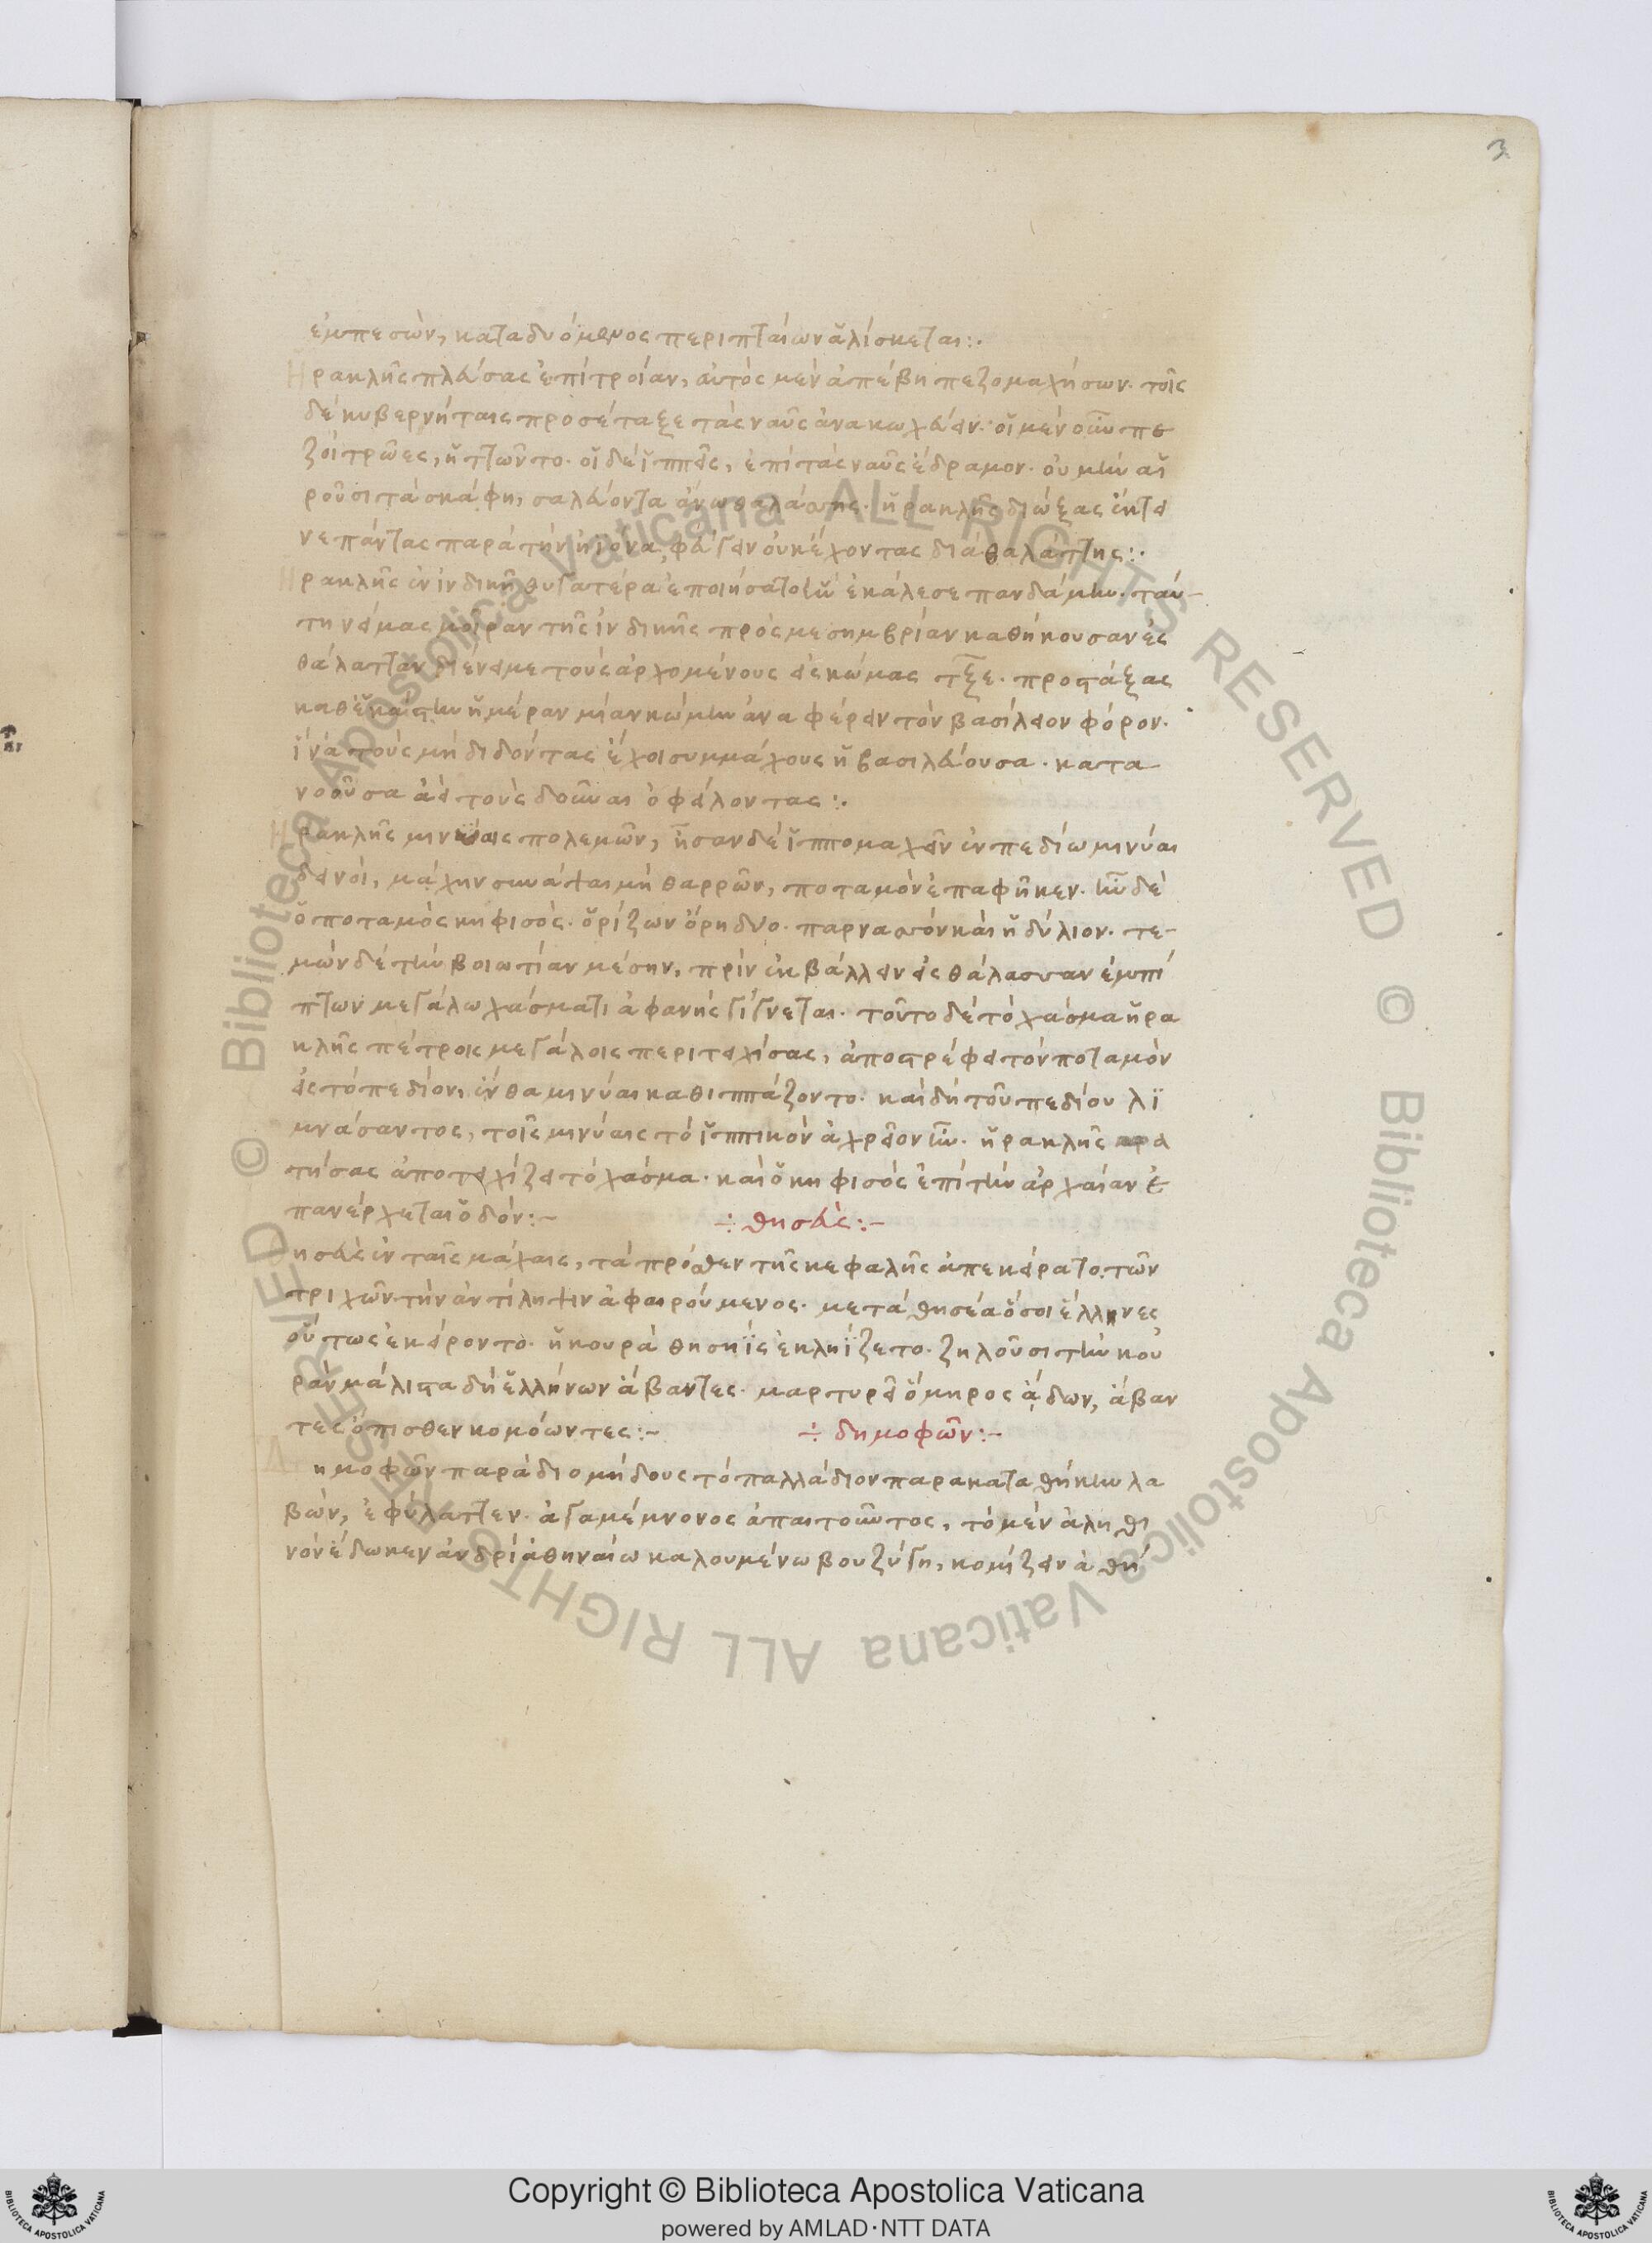 3
ἐμπεσὼν, καταδυόμενος περιπταίων ἁλίσκεται:.
Ἡρακλῆς πλεύσας ἐπὶ τροίαν, αὐτὸς μὲν ἀπέβη πεζομαχήσων. τοῖς
δὲ κυβερνήταις προσέταξε τὰς ναῦς ἀνακωχεύειν. οἱ μὲν οὖν πε
ζοὶ τρῶες, ἡττῶντο. οἱ δὲ ἱππεῖς, ἐπὶ τὰς ναῦς ἔδραμον. οὐ μὴν αἱ
ροῦσι τὰ σκάφη, σαλεύοντα ἄνω θαλάσσης. ἡρακλῆς διώξας ἔκτει
νε πάντας παρὰ τὴν ἠϊόνα, φεύγειν οὐκ ἔχοντας διὰ θαλάττης:.
Ἡρακλῆς ἐν ἰνδικῇ θυγατέρα ἐποιήσατο ἣν ἐκάλεσε πανδαίην. ταύ-
τη νείμας μοῖραν τῆς ἰνδικῆς πρὸς μεσημβρίαν καθήκουσαν ἐς
θάλατταν διένειμε τοὺς ἀρχομένους εἰς κώμας τξε. προστάξας
καθ' ἑκάστην ἡμέραν μίαν κώμην ἀναφέρειν τὸν βασίλειον φόρον.
ἵνα τοὺς μὴ διδόντας ἔχοι συμμάχους ἡ βασιλεύουσα. κατα
νοοῦσα ἀεὶ τοὺς δοῦναι ὀφείλοντας:.
Ἡρακλῆς μινύαις πολεμῶν, ἦσαν δὲ ἱππομαχεῖν ἐν πεδίω μινύαι
δεινοὶ, μάχην συνάψαι μὴ θαρρῶν, ποταμὸν ἐπαφῆκεν. ἦν δὲ
ὁ ποταμὸς κηφισός. ὁρίζων ὄρη δύο. παρνασσὸν καὶ ἡδύλιον. τε-
μὼν δὲ τὴν βοιωτίαν μέσην, πρὶν ἐκβάλλειν εἰς θάλασσαν ἐμπί
πτων μεγάλω χάσματι ἀφανὴς γίγνεται. τοῦτο δὲ τὸ χάσμα ἡρα
κλῆς πέτροις μεγάλοις περιτειχίσας, ἀποστρέφει τὸν ποταμὸν
εἰς τὸ πεδίον, ἔνθα μινύαι καθιππάζοντο. καὶ δὴ τοῦ πεδίου λϊ
μνάσαντος, τοῖς μινύαις τὸ ἱππικὸν ἀχρεῖον ἦν. ἡρακλῆς
τήσας ἀποτειχίζει τὸ χάσμα. καὶ ὁ κηφισὸς ἐπὶ τὴν ἀρχαίαν ἐ
πανέρχεται ὁδόν:- ÷ θησεὺς:-
ησεὺς ἐν ταῖς μάχαις, τὰ πρόσθεν τῆς κεφαλῆς ἀπεκείρατο. τῶν
τριχῶν τὴν ἀντίληψιν ἀφαιρούμενος. μετὰ θησέα ὅσοι ἕλληνες
οὕτως ἐκείροντο. ἡ κουρὰ θησηῒς ἐκληΐζετο. ζηλοῦσι τὴν κου
ρὰν μάλιστα δὴ ἑλλήνων ἄβαντες. μαρτυρεῖ ὅμηρος ᾄδων, ἄβαν
τες ὄπισθεν κομόωντες:- ÷ δημοφῶν:-
Δημοφῶν παρὰ διομήδους τὸ παλλάδιον παρακαταθήκην λα
βὼν, ἐφύλαττεν. ἀγαμέμνονος ἀπαιτοῦντος, τὸ μὲν ἀληθι
νὸν ἔδωκεν ἀνδρὶ ἀθηναίω καλουμένω βουζύγη, κομίζειν ἀθή
© Biblioteca Apostolica Vaticana ALL RIGHTS RESERVED © Biblioteca Apostolica Vaticana ALL RIGHTS RESERVED
Copyright © Biblioteca Apostolica Vaticana
powered by AMLAD·NTT DATA
BIBLIOTECA APOSTOLICA VATICANA
BIBLIOTECA APOSTOLICA VATICANA